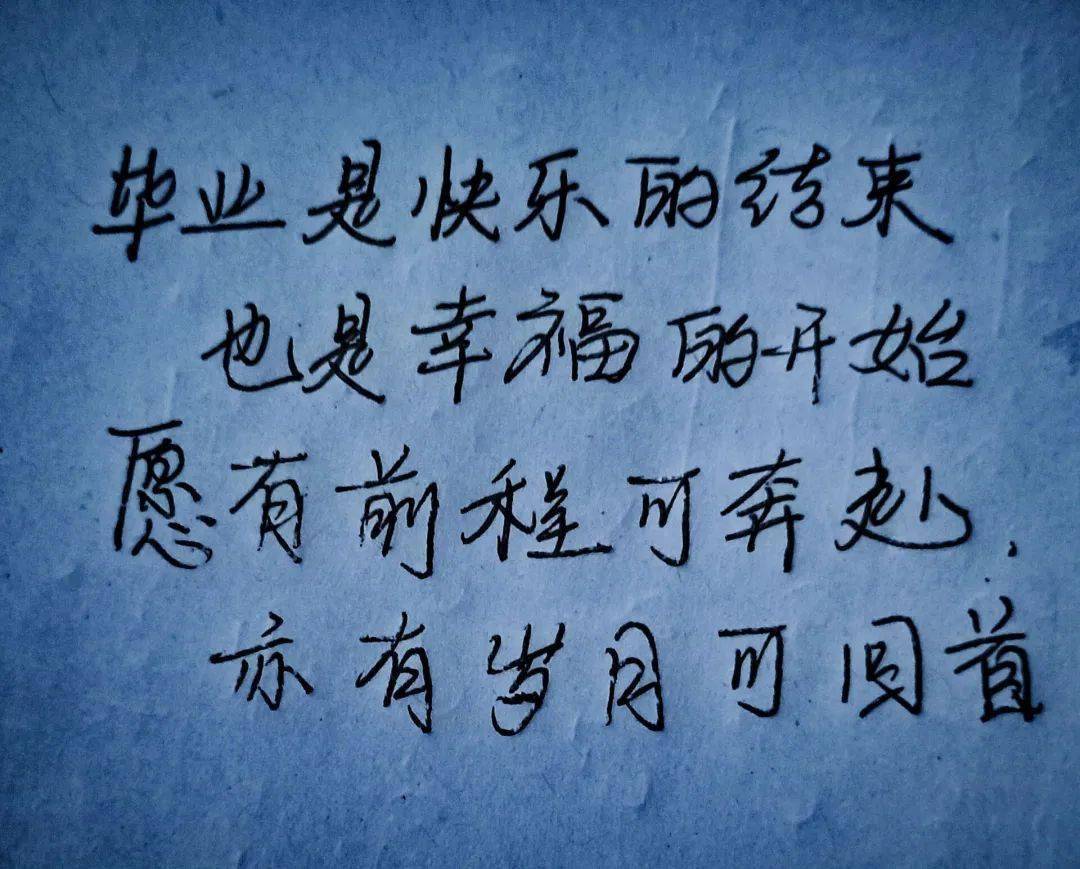 毕业是快乐的结束
也是幸福的开始
愿有前程可奔赴，
亦有岁月可回首